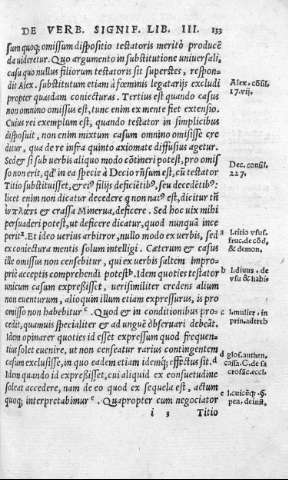 DE VERB. SIGNIF. LIB. III. 133
sum quoq; omissum dispositio testatoris meritò producẽ
da uideretur. Quo argumento in substitutione uniuersali,
casu quo nullus filiorum testatoris sit superstes, respon-
dit Alex. substitutum etiam à fœminis legatarijs excludi
propter quasdam coniecturas. Tertius est quando casus
non omnino omissus est, tunc enim ex mente fiet extensio.
Cuius rei exemplum est, quando testator in simplicibus
disposuit, non enim mixtum casum omnino omisisse cre
ditur, qua de re infra quinto axiomate diffusius agetur.
Sed & si sub uerbis aliquo modo cõtineri potest, pro omis
so non erit, qd' in ea specie à Decio rñsum est, cũ testator
Titiũ substituisset, & ei' filijs deficiẽtib', seu decedẽtib':
licet enim non dicatur decedere q non nat' est, dicitur tñ
& crassa Minerua, deficere. Sed hoc uix mihi
persuaderi potest, ut deficere dicatur, quod nunquã ince
perit. Et ideo uerius arbitror, nullo modo ex uerbis, sed
ex coniectura mentis solum intelligi. Cæterum & casus
ille omissus non censebitur, qui ex uerbis saltem impro-
priè acceptis comprehendi potest. Idem quoties testator
unicum casum expressisset, uerisimiliter credens alium
non euenturum, alioquin illum etiam expressurus, is pro
omisso non habebitur c. Quod & in conditionibus pro=
cedit, quamuis specialiter & ad unguẽ obseruari debeãt.
Idem opinarer quoties id esset expressum quod frequen=
tius solet euenire, ut non censeatur rarius contingentem
casum exclusisse, in quo eadem etiam idemq; effectus sit d.
Idem quando id expressisset, cui aliquid ex consuetudine
solet accedere, nam de eo quod ex sequela est, actum
quoq; interpretabimur e. Quapropter cum negociator
i 3 Titio
Alex. cõsil.
17. vij.
Dec. consil.
227.
b l. diuus. de
c l. mulier. in
d glos. authen.